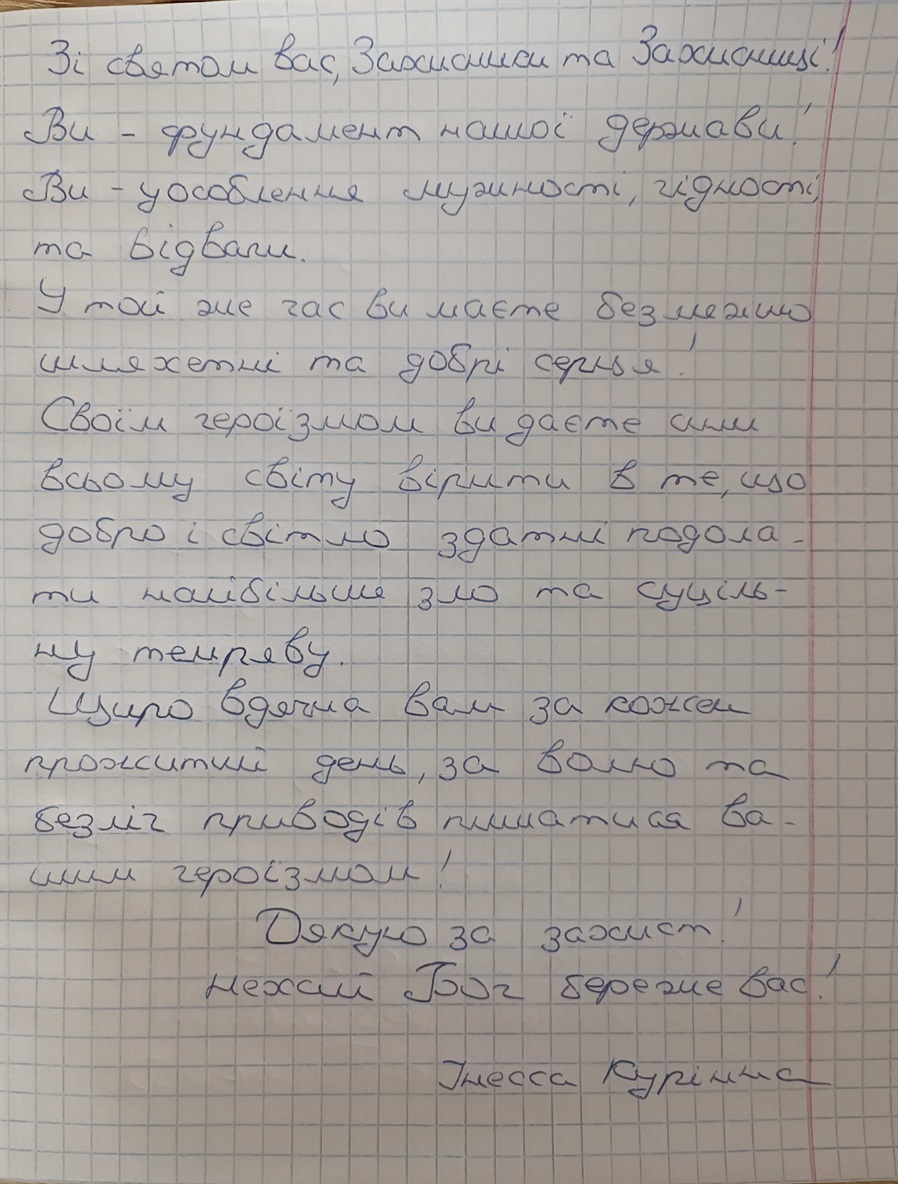 Зі святом вас, Захисники та Захисниці!
Ви - фундамент нашої держави!
Ви - уособлення мужності, гідності
та відваги.
У той же час ви маєте безмежно
шляхетні та добрі серця!
Своїм героїзмом ви даєте сили
всьому світу вірити в те, що
добро і світло здатні подола-
ти найбільше зло та суціль-
ну темряву.
Щиро вдячна вам за кожен
прожитий день, за волю та
безліч приводів пишатися ва-
шим героїзмом!
Дякую за захист!
Нехай Бог береже вас!
Інесса Курінна